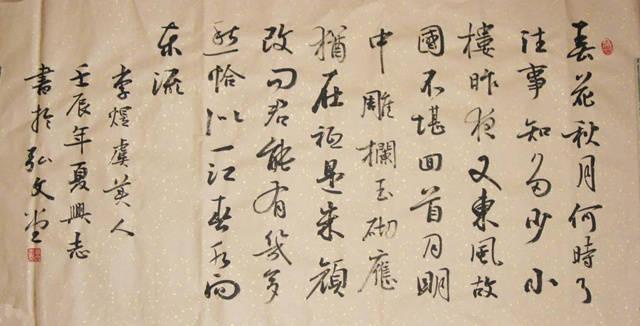 春花秋月何時了
往事知多少小
樓昨夜又東風故
國不堪回首月明
中雕欄玉砌應
猶在祗是朱顏
改問君能有幾多
愁恰似一江春水向
東流
李煜虞美人
壬辰年夏興志
書於弘文堂